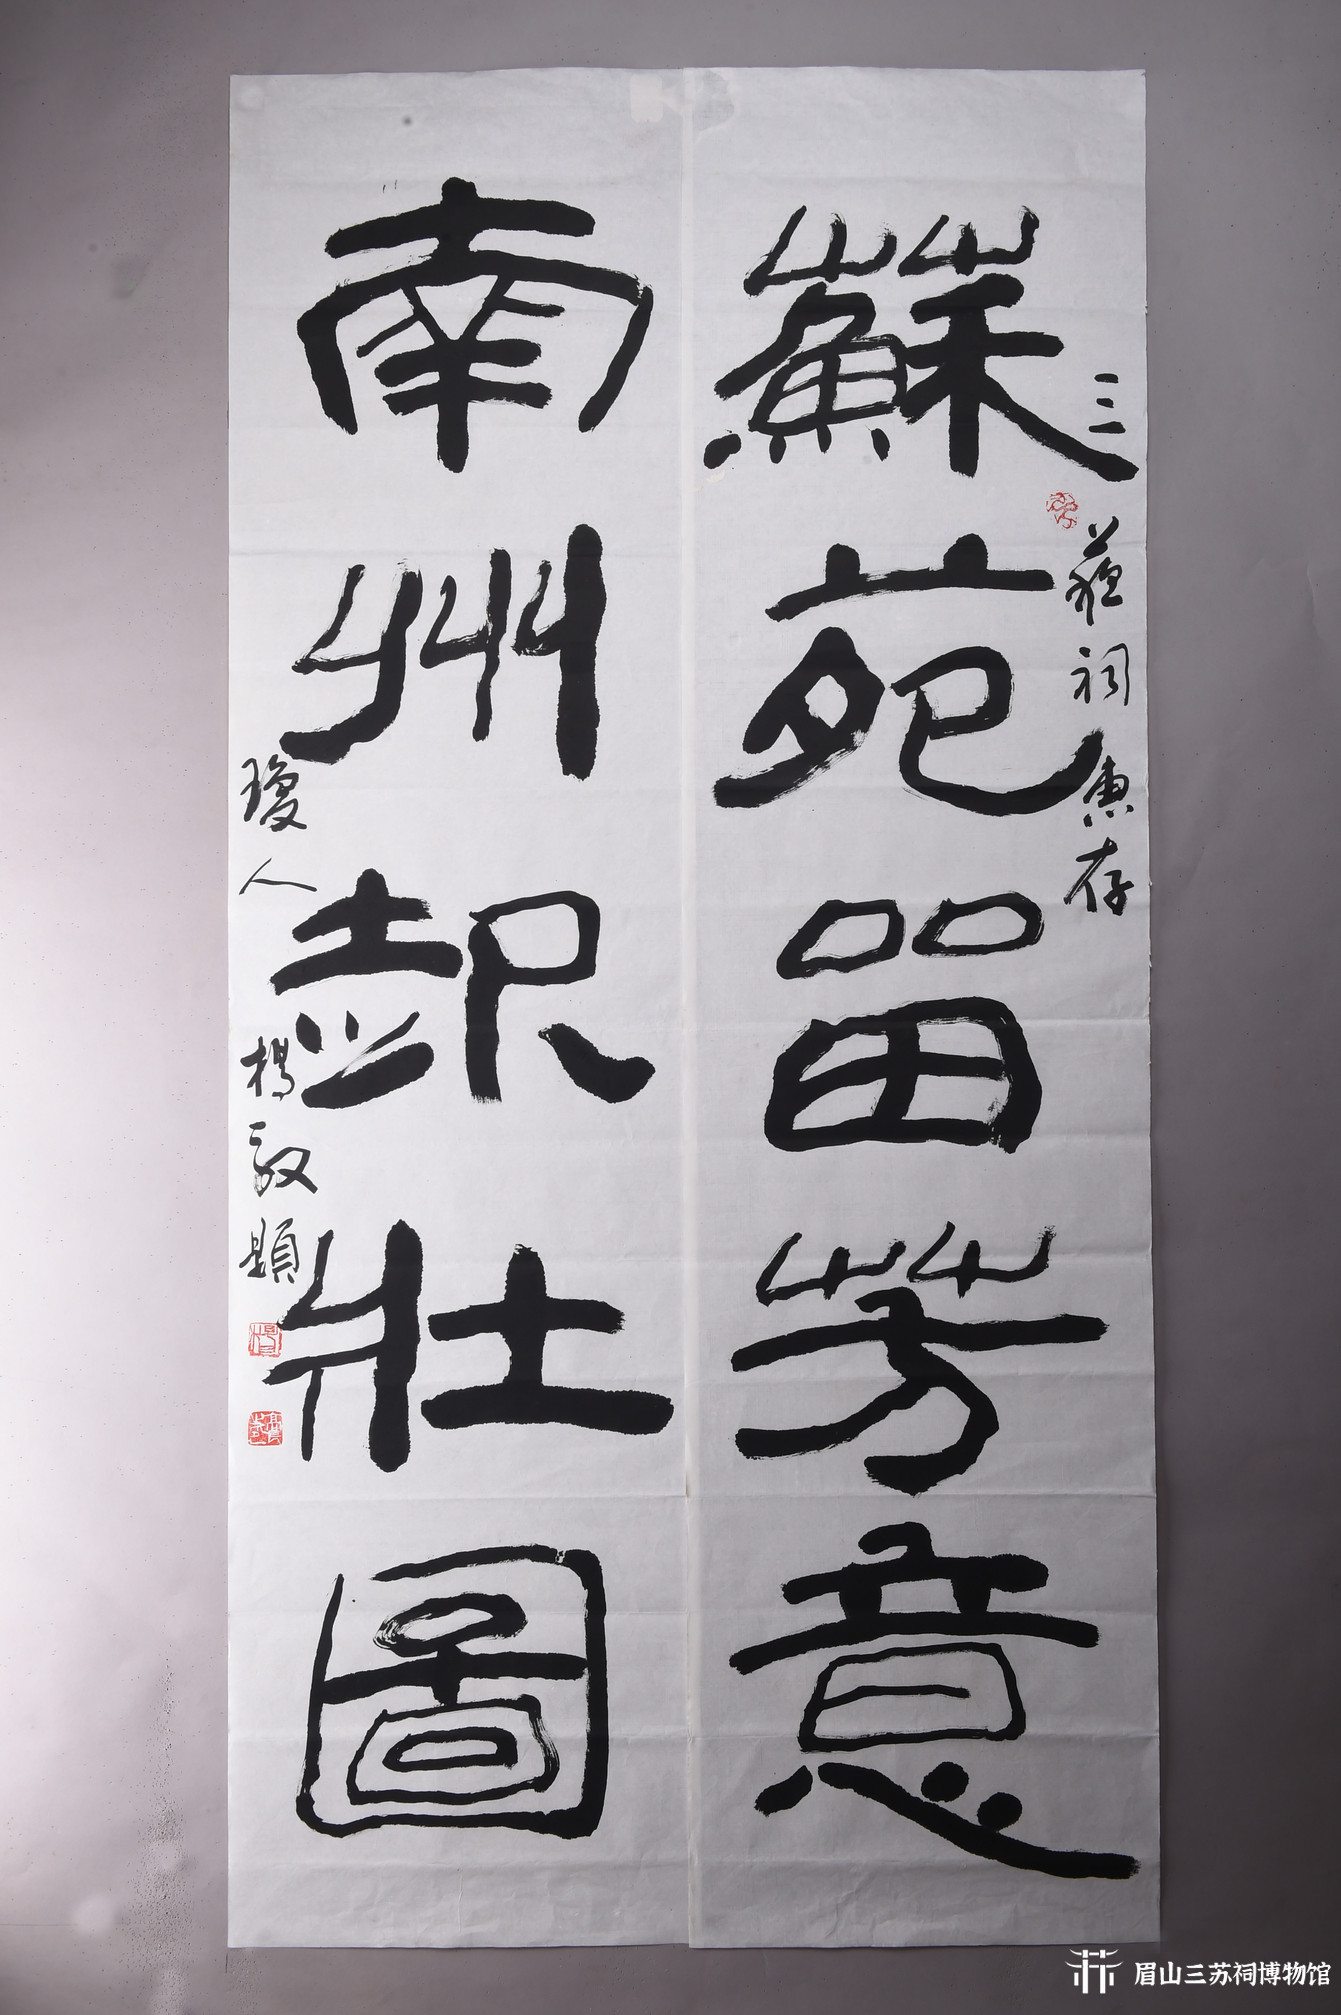 三蘇祠惠存
蘇苑留芳意
南州壯圖
瓊人楊題
眉山三苏祠博物馆